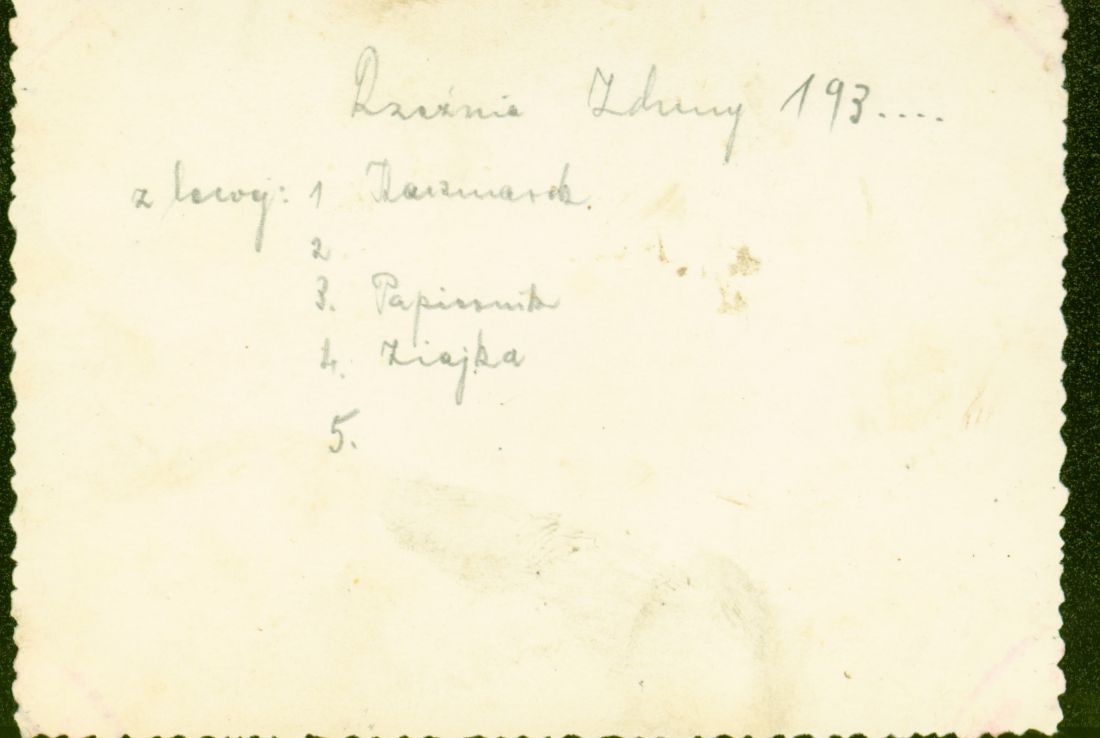 Rzeźnia Zduny 193.....
z lewej: 1 Kaczmarek
2
3. Papiernik
4. Ziajka
5.